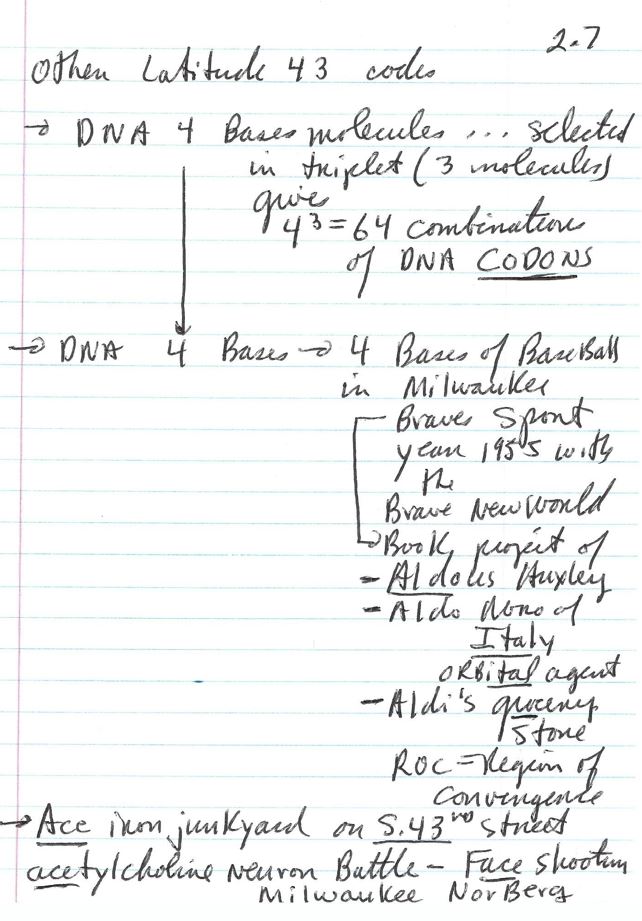 2.7
Other Latitude 43 codes
→ DNA 4 Bases molecules ... selected
in triplet (3 molecules)
give
4³ = 64 combinations
of DNA CODONS
→ DNA 4 Bases → 4 Bases of BaseBall
in Milwaukee
Braves Sport
year 1955 with
the
Brave New World
Book project of
- Aldous Huxley
- Aldo Moro of
Italy
ORBital agent
- Aldi's grocery
Store
ROC = Region of
Convergence
→ Ace iron junkyard on S. 43rd street
acetylcholine neuron Battle - Face shooting
Milwaukee NorBerg